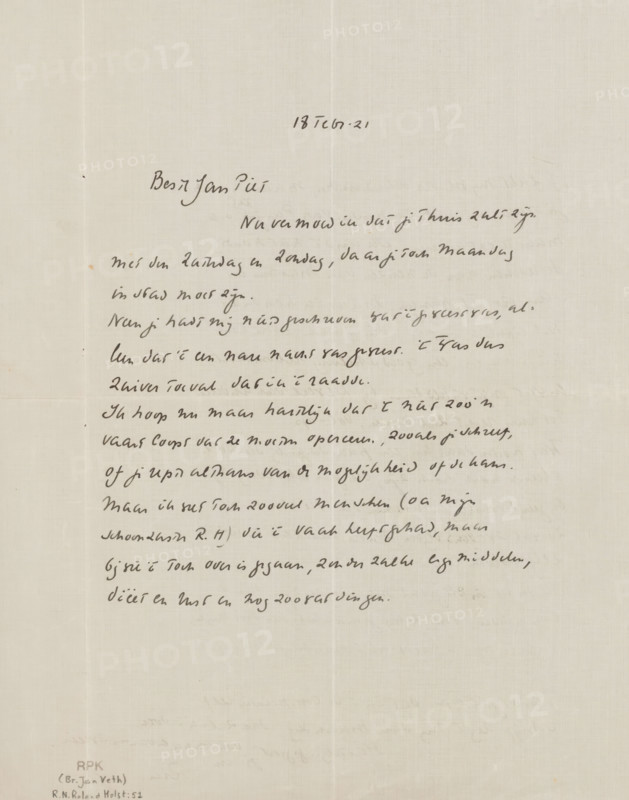 18 Febr. 21
Beste Jan Piet
Nu vermoed ik dat je thuis zult zijn
met den Zaterdag en Zondag, daar je toch Maandag
in stad moet zijn.
Neen je hadt mij niet geschreven wat 't geweest was, al-
leen dat 't een nare nacht was geweest. 't Was dus
zuiver toeval dat ik 't raadde.
Ik hoop nu maar hartelijk dat 't niet zoo'n
vaart loopt dat ze moeten opereeren, zooals je schreef,
of je rept althans van de mogelijkheid of de kans.
Maar ik weet toch zooveel menschen (oa mijn
schoonzuster R. H) die 't vaak heeft gehad, maar
bij wie 't toch over is gegaan, zonder zulke erge middelen,
diëet en rust en nog zoo wat dingen.
RPK
(Br. Jan Veth)
R.N. Roland Holst: 52
PHOTO12